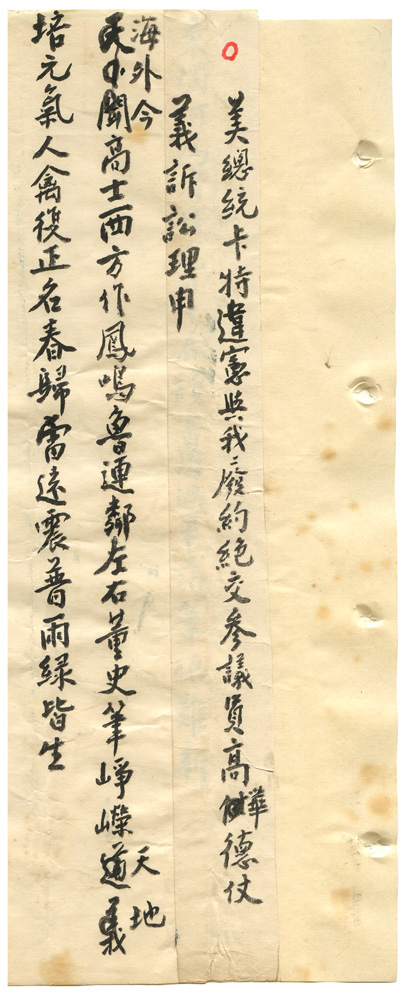 美總統卡特違憲與我廢約絕交參議員高華德仗
義訴訟理申
海外今
聞高士西方作鳳鳴魯連鄰左右董史筆崢嶸道義
天地
培元氣人禽復正名春歸雷遠震普雨綠皆生